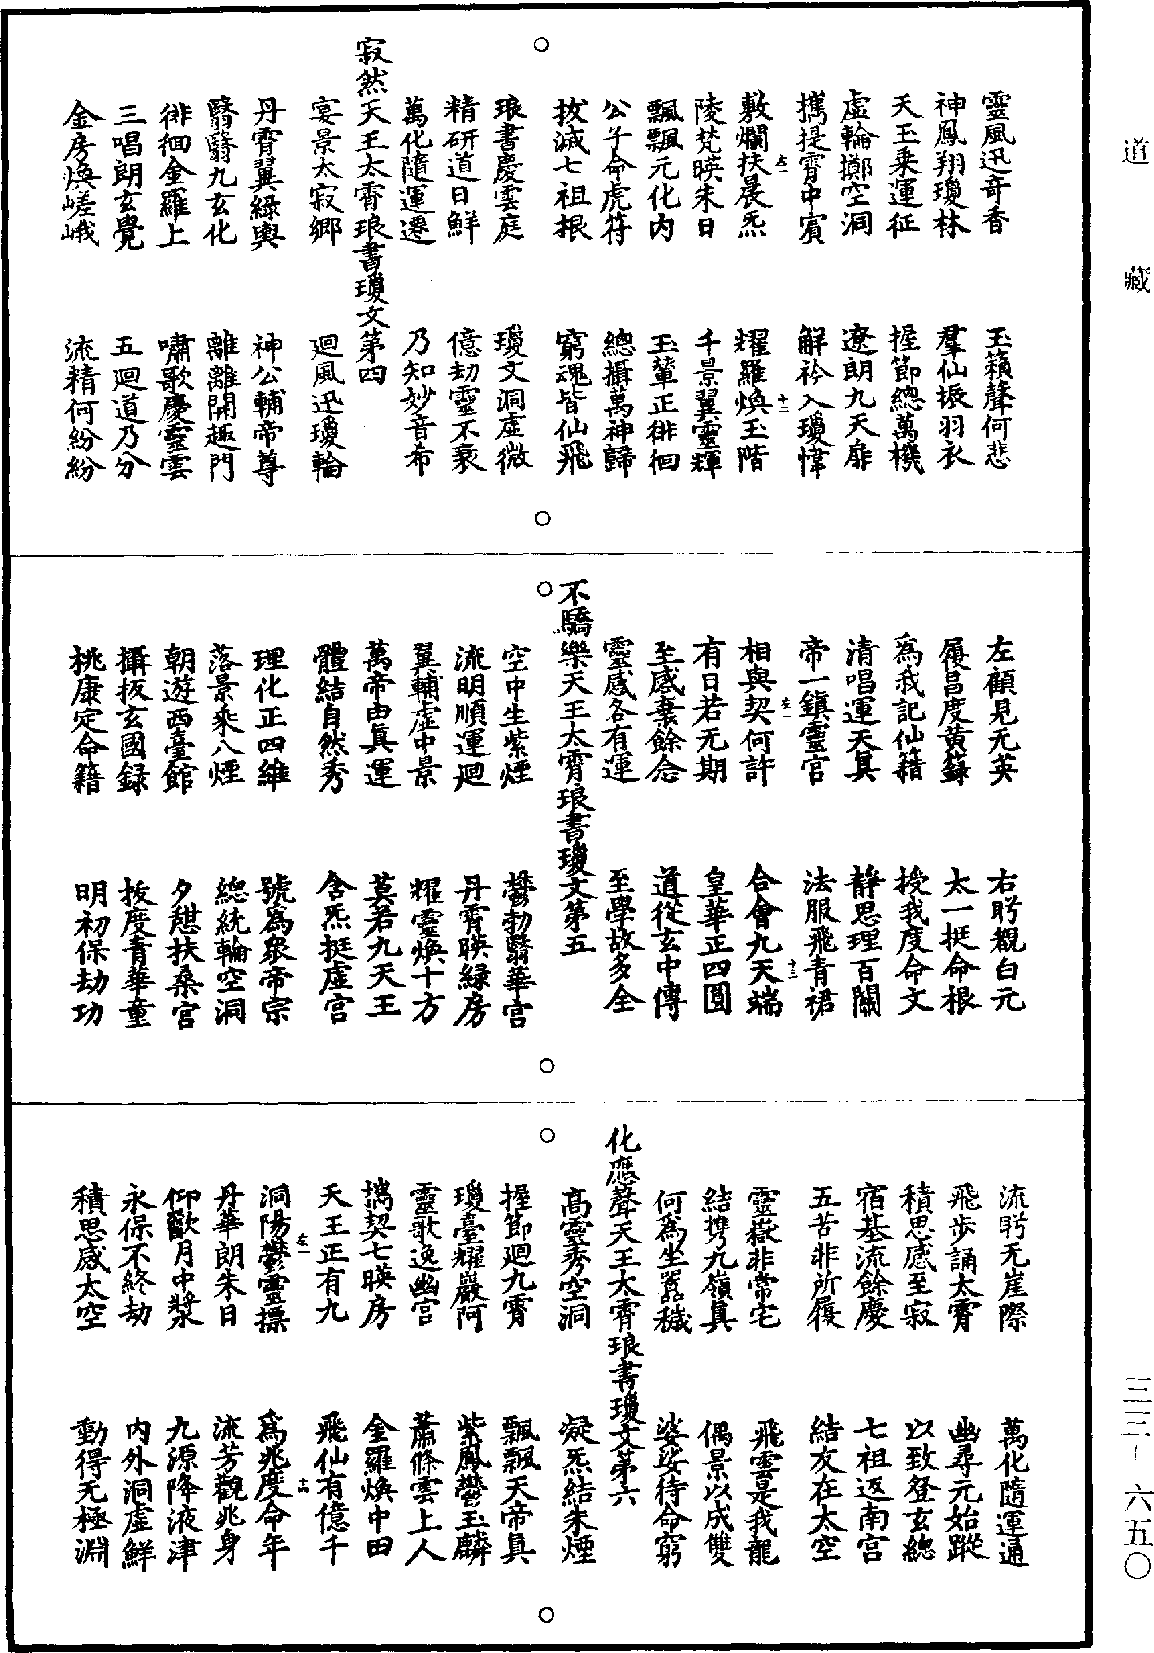 道藏
三三—六五〇
靈風迅奇香　玉籟聲何悲
神鳳翔瓊林　羣仙振羽衣
天玉乘運征　握節總萬機
虛輪擲空洞　遼朗九天扉
攜提霄中賓　解衿入瓊幃
敷爛扶晨炁　耀羅煥玉階
陵梵暎朱日　千景翼靈輝
飄飄元化内　玉輦正徘徊
公子命虎符　總攝萬神歸
拔滅七祖根　窮魂皆仙飛
琅書慶雲庭　瓊文洞虛微
精研道日鮮　億劫靈不衰
萬化隨運遷　乃知妙音希
寂然天王太霄琅書瓊文第四
宴景太寂鄉　迴風迅瓊輪
丹霄翼綠輿　神公輔帝尊
翳翳九玄化　離離開趣門
徘徊金羅上　嘯歌慶靈雲
三唱朗玄覺　五迴道乃分
金房煥嵯峨　流精何紛紛
左顧見无英　右眄觀白元
履昌度黄籙　太一挺命根
爲我記仙籍　授我度命文
清唱運天真　靜思理百關
帝一鎮靈宫　法服飛青裙
相與契何許　合會九天端
有日若无期　皇華正四圓
至感棄餘念　道從玄中傳
靈感各有運　至學故多全
不驕樂天王太霄琅書瓊文第五
空中生紫煙　鬱勃翳華宫
流明順運迴　丹霄暎緑房
翼輔虛中景　耀靈煥十方
萬帝由真運　莫若九天王
體結自然秀　含炁挺虛宫
理化正四維　號爲衆帝宗
落景乘八煙　總統輪空洞
朝遊西臺館　夕憇扶桑宫
攝拔玄國録　拔度青華童
桃康定命籍　明初保劫功
流眄无崖際　萬化隨運通
飛步誦太霄　幽尋元始蹤
積思感至寂　以致登玄總
宿基流餘慶　七祖返南宫
五苦非所履　結友在太空
靈嶽非常宅　飛雲是我龍
結携九嶺真　偶景以成雙
何爲坐囂穢　婆娑待命窮
化應聲天王太霄琅書瓊文第六
高靈秀空洞　凝炁結朱煙
握節迴九霄　飄飄天帝真
瓊臺耀巖阿　紫鳳鬱玉麟
靈歌逸幽宫　蕭條雲上人
摛契七暎房　金羅煥中田
天王正有九　飛仙有億千
洞陽鬱靈摽　爲兆度命年
丹華朗朱日　流芳觀兆身
仰歠月中漿　九源降液津
永保不終劫　内外洞虛鮮
積思感太空　動得无極淵